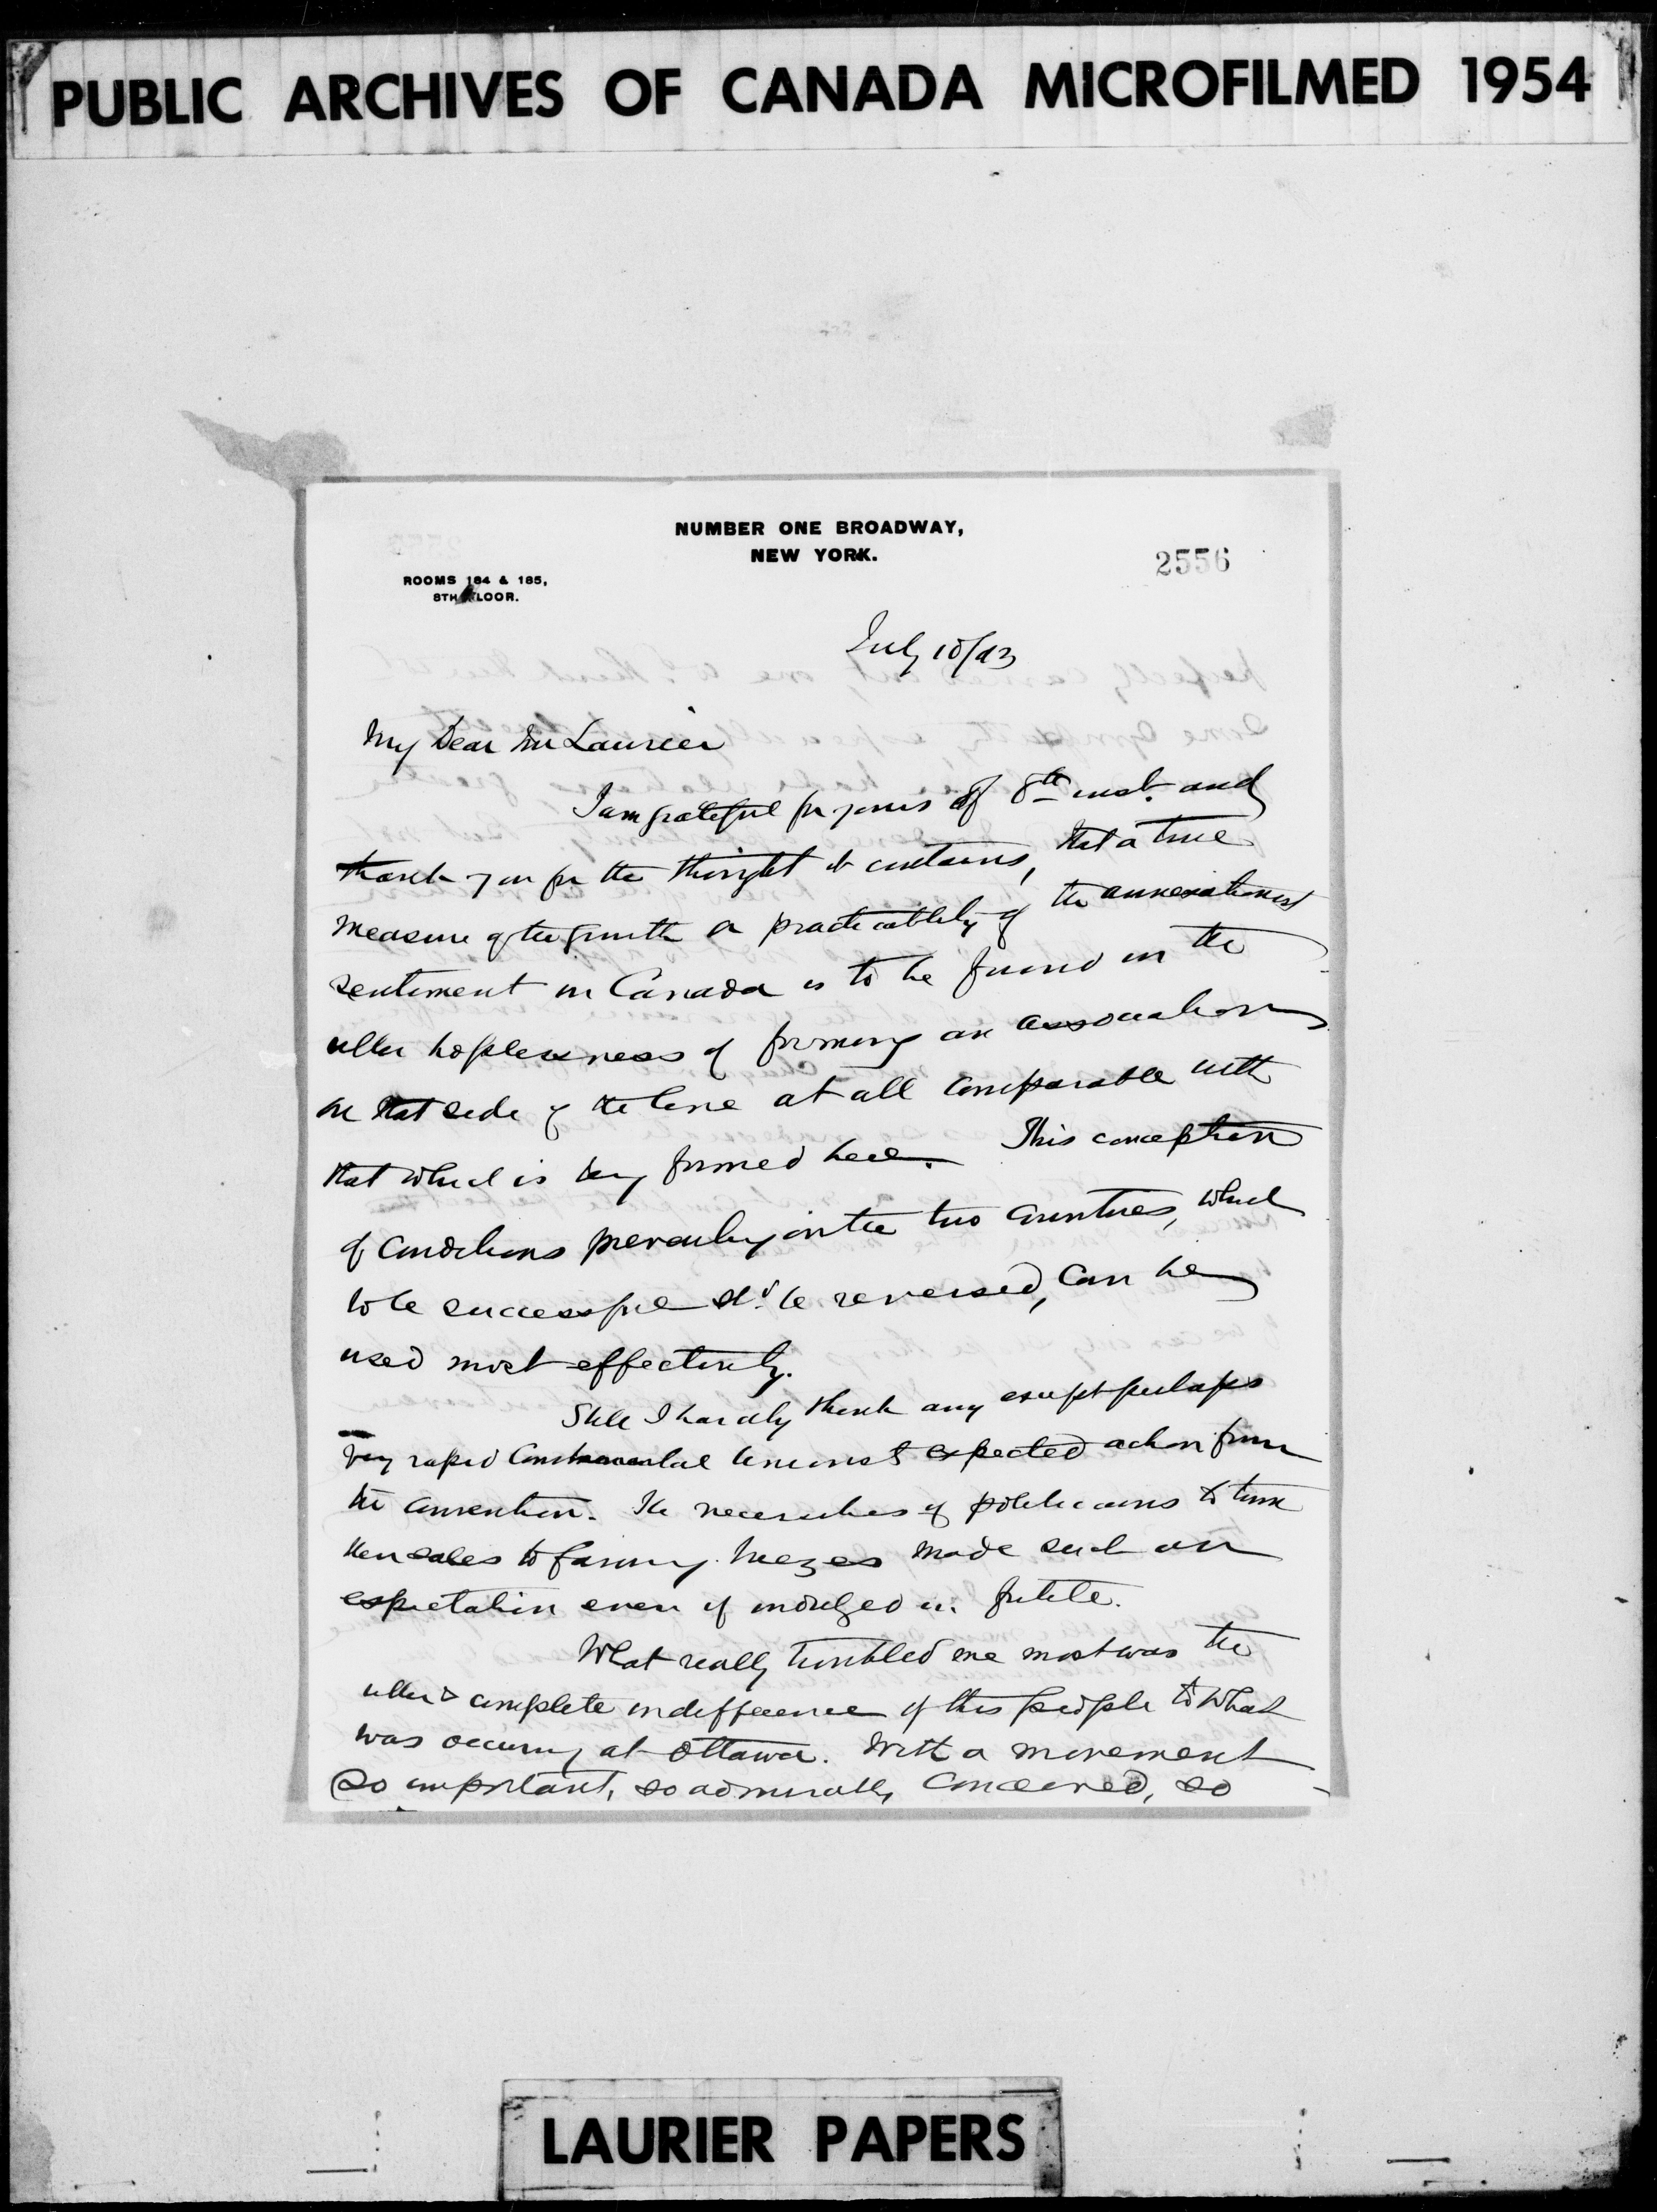 PUBLIC ARCHIVES OF CANADA MICROFILMED 1954
NUMBER ONE BROADWAY,
NEW YORK.
2556
ROOMS 184 & 185,
8TH FLOOR.
July 10/93
My Dear Mr Laurier
I am grateful for yours of 8th inst. and
thank you for the thought it contains, that a true
measure of the growth or practicability of the annexationist
sentiment in Canada is to be found in the
utter hoplessness of forming an association
on that side of the line at all comparable with
that which is being formed here. This conception
of conditions prevailing in the two countries, which
to be successful shd. be reversed, can be
used most effectively.
Still I hardly think any except perhaps
very rapid Continental Unionist expected action from
the convention. The necessities of politicians to turn
their sales to fanning breezes made such an
expectation even if indulged in futile.
What really troubled me most was the
utter & complete indifference of this people to what
was occuring at Ottawa. With a movement
so important, so admirably conceived, so
LAURIER PAPERS